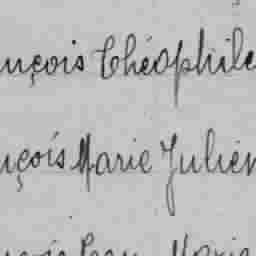 nçois Théophile
nçois Marie Julien